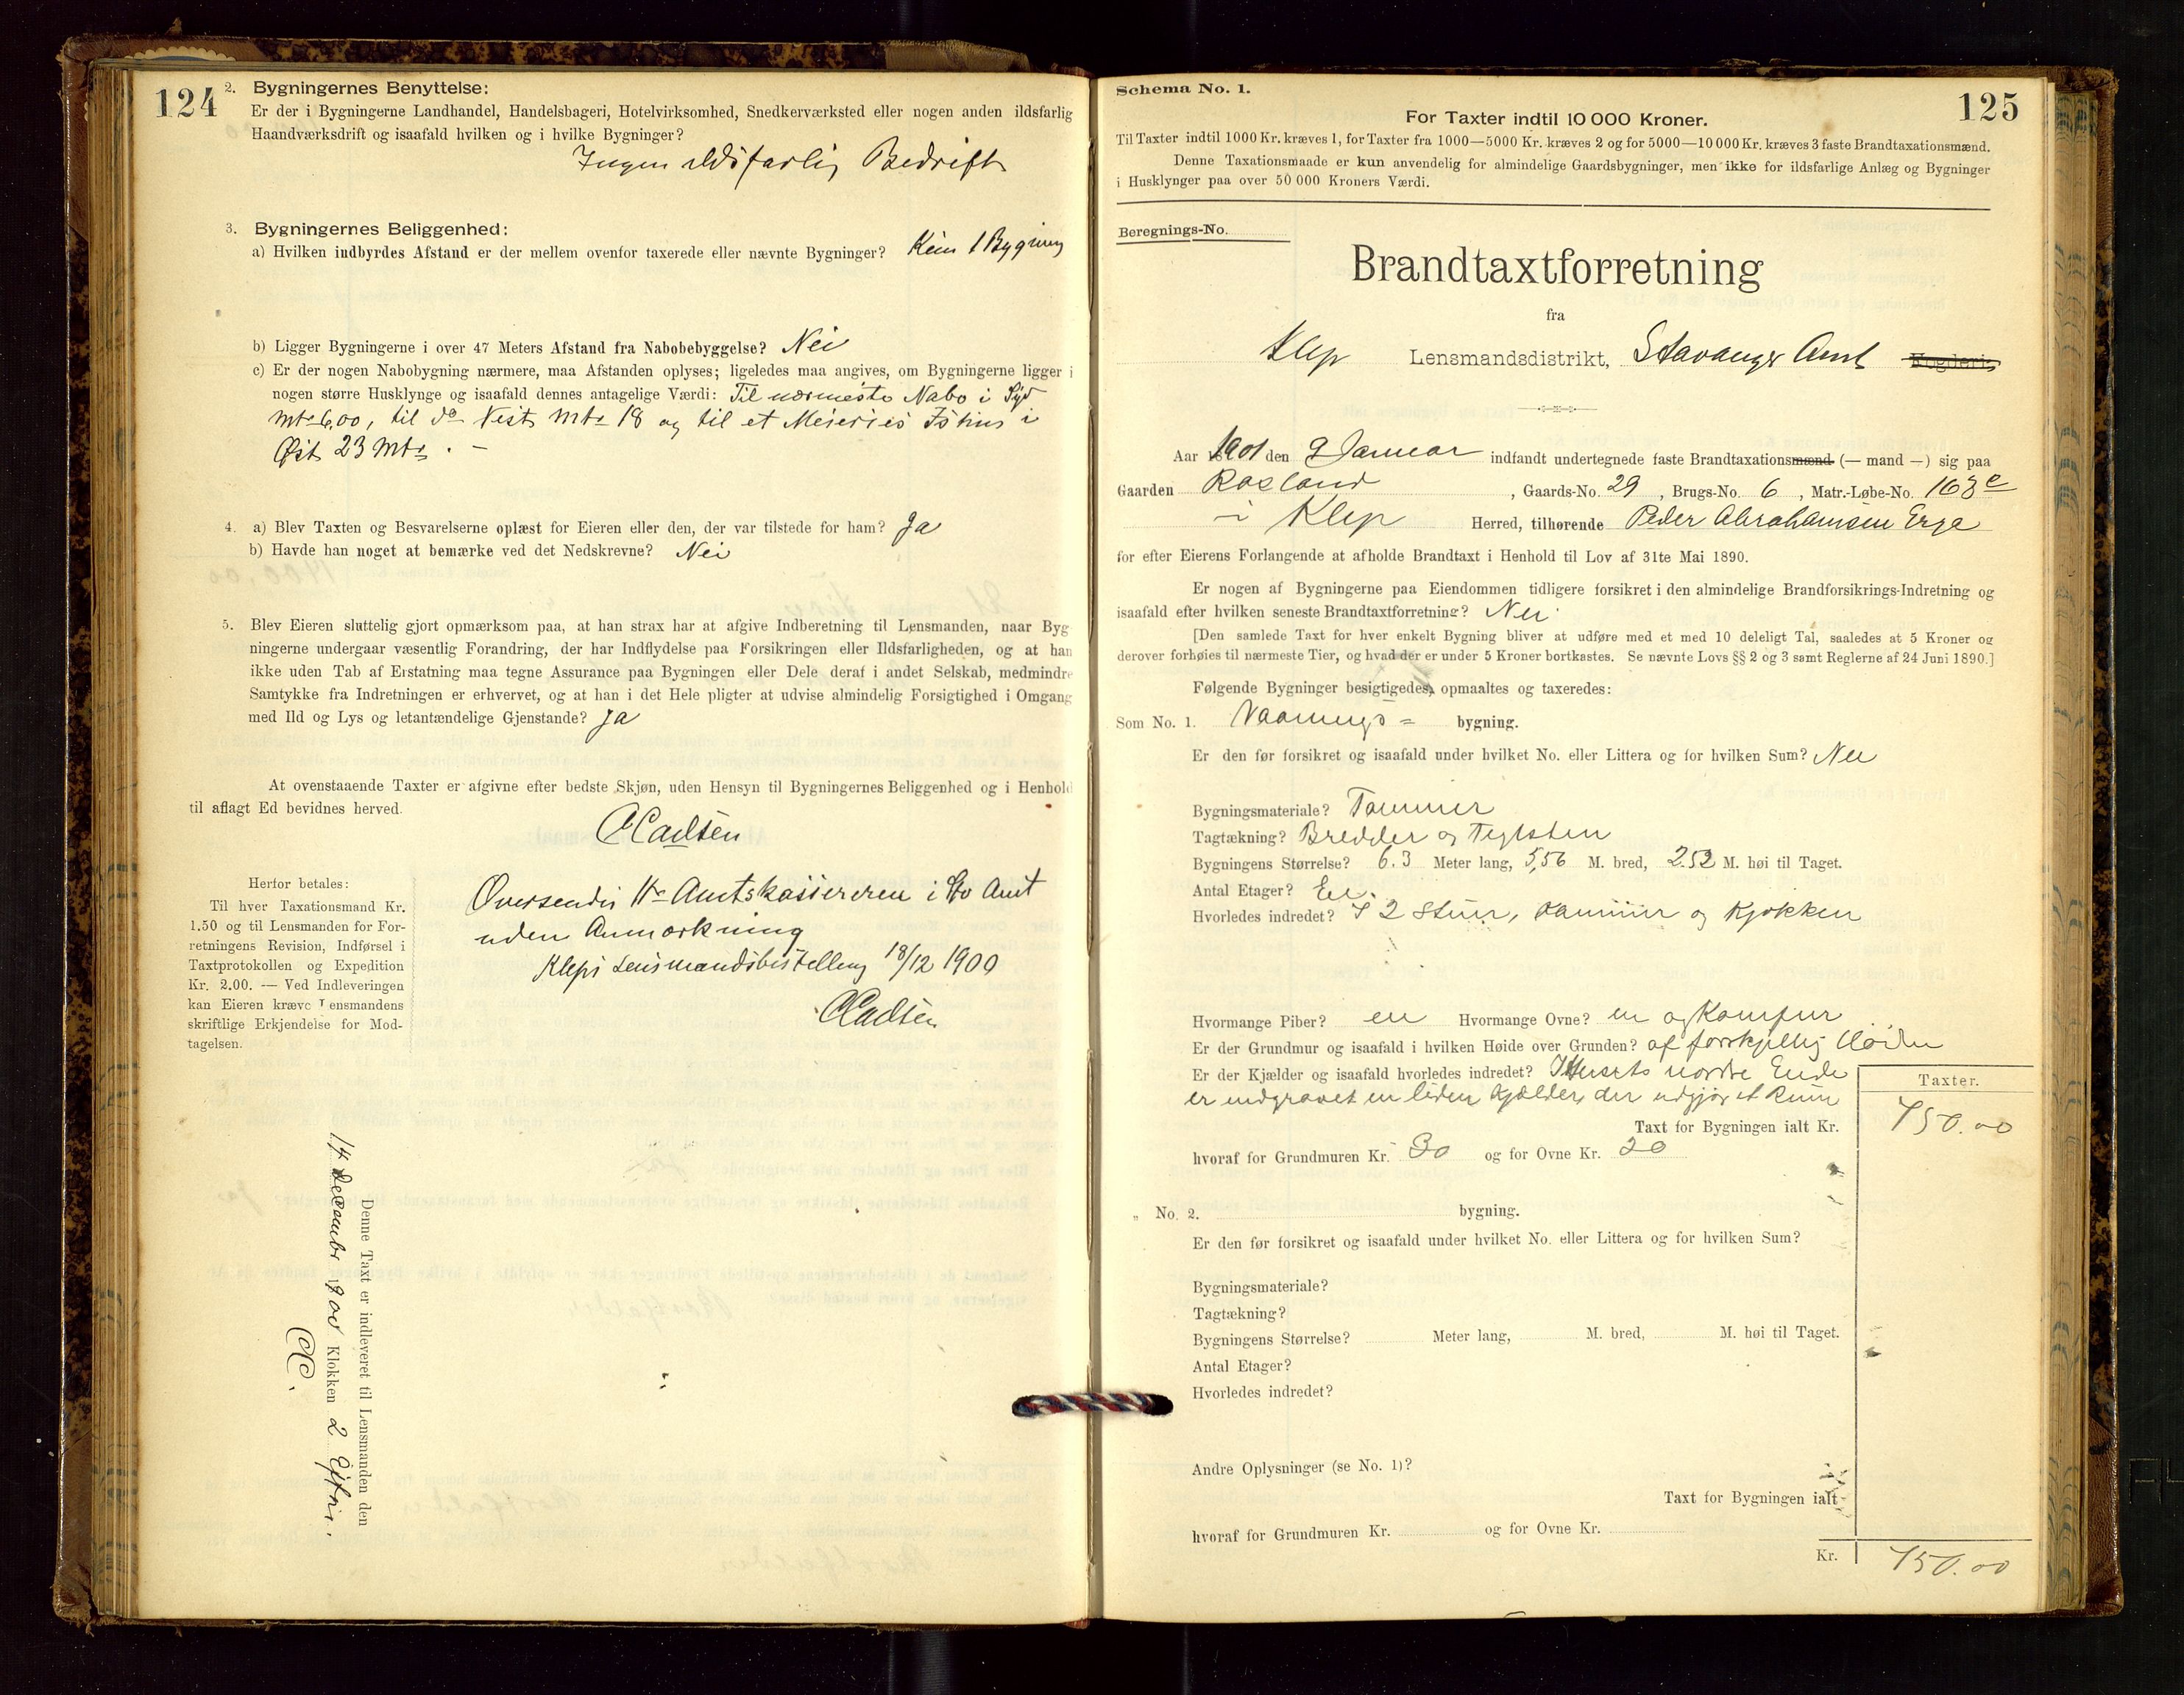 124
2. Bygningernes Benyttelse:
Er der i Bygningerne Landhandel, Handelsbageri, Hotelvirksomhed, Snedkerværksted eller nogen anden ildsfarlig
Haandværksdrift og isaafald hvilken og i hvilke Bygninger?
Ingen ildsfarlig Bedrift
3. Bygningernes Beliggenhed:
a) Hvilken indbyrdes Afstand er der mellem ovenfor taxerede eller nævnte Bygninger? Kun 1 Bygning
b) Ligger Bygningerne i over 47 Meters Afstand fra Nabobebyggelse? Nei
c) Er der nogen Nabobygning nærmere, maa Afstanden oplyses; ligeledes maa angives, om Bygningerne ligger i
nogen større Husklynge og isaafald dennes antagelige Værdi: Til nærmeste Nabo i Syd
Mtr 6,00, til do Vest Mtr 18 og til et Meieries Ishus i
Øst 23 Mtr. —
4. a) Blev Taxten og Besvarelserne oplæst for Eieren eller den, der var tilstede for ham? Ja
b) Havde han noget at bemærke ved det Nedskrevne? Nei
5. Blev Eieren sluttelig gjort opmærksom paa, at han strax har at afgive Indberetning til Lensmanden, naar Byg
ningerne undergaar væsentlig Forandring, der har Indflydelse paa Forsikringen eller Ildsfarligheden, og at han
ikke uden Tab af Erstatning maa tegne Assurance paa Bygningen eller Dele deraf i andet Selskab, medmindre
Samtykke fra Indretningen er erhvervet, og at han i det Hele pligter at udvise almindelig Forsigtighed i Omgang
med Ild og Lys og letantændelige Gjenstande? Ja
At ovenstaaende Taxter er afgivne efter bedste Skjøn, uden Hensyn til Bygningernes Beliggenhed og i Henhold
til aflagt Ed bevidnes herved.
Herfor betales:
Til hver Taxationsmand Kr.
1.50 og til Lensmanden for For-
retningens Revision, Indførsel i
Taxtprotokollen og Expedition
Kr. 2.00. — Ved Indleveringen
kan Eieren kræve Lensmandens
skriftlige Erkjendelse for Mod-
tagelsen.
Oversendes Hr Amtskassereren i Stv Amt
uden Anmærkning
Kleps Lensmandsbestilling 18/12 1900
Denne Taxt er indleveret til Lensmanden den
14 December 1900 Klokken 2 Eftm.
Schema No. 1.
125
For Taxter indtil 10 000 Kroner.
Til Taxter indtil 1000 Kr. kræves 1, for Taxter fra 1000—5000 Kr. kræves 2 og for 5000—10 000 Kr. kræves 3 faste Brandtaxationsmænd.
Denne Taxationsmaade er kun anvendelig for almindelige Gaardsbygninger, men ikke for ildsfarlige Anlæg og Bygninger
i Husklynger paa over 50 000 Kroners Værdi.
Beregnings-No.
Brandtaxtforretning
fra
Klep Lensmandsdistrikt, Stavanger Amt Fogderi.
Aar 1901 den 9 Januar indfandt undertegnede faste Brandtaxationsmænd (— mand —) sig paa
Gaarden Roeland, Gaards-No. 29, Brugs-No. 6, Matr.-Løbe-No. 163 c
i Klep Herred, tilhørende Peder Abrahamsen Erga
for efter Eierens Forlangende at afholde Brandtaxt i Henhold til Lov af 31te Mai 1890.
Er nogen af Bygningerne paa Eiendommen tidligere forsikret i den almindelige Brandforsikrings-Indretning og
isaafald efter hvilken seneste Brandtaxtforretning? Nei
[Den samlede Taxt for hver enkelt Bygning bliver at udføre med et med 10 deleligt Tal, saaledes at 5 Kroner og
derover forhøies til nærmeste Tier, og hvad der er under 5 Kroner bortkastes. Se nævnte Lovs §§ 2 og 3 samt Reglerne af 24 Juni 1890.]
Følgende Bygninger besigtigedes, opmaaltes og taxeredes:
Som No. 1. Vaanings= bygning.
Er den før forsikret og isaafald under hvilket No. eller Littera og for hvilken Sum? Nei
Bygningsmateriale? Tømmer
Tagtækning? Bredder og Teglsten
Bygningens Størrelse? 6.3 Meter lang, 5,56 M. bred, 2.52 M. høi til Taget.
Antal Etager? En.
Hvorledes indredet? I 2 Stuer, Kammer og Kjøkken
Hvormange Piber? en Hvormange Ovne? en og Komfur
Er der Grundmur og isaafald i hvilken Høide over Grunden? af forskjellig Høide
Er der Kjælder og isaafald hvorledes indredet? I Husets nordre Ende
er indgravet en liden Kjælder, der udgjør et Rum
Taxter.
Taxt for Bygningen ialt Kr. 750.00
hvoraf for Grundmuren Kr. 30 og for Ovne Kr. 20
„ No. 2. bygning.
Er den før forsikret og isaafald under hvilket No. eller Littera og for hvilken Sum?
Bygningsmateriale?
Tagtækning?
Bygningens Størrelse? Meter lang, M. bred, M. høi til Taget.
Antal Etager?
Hvorledes indredet?
Andre Oplysninger (se No. 1)?
Taxt for Bygningen ialt
hvoraf for Grundmuren Kr. og for Ovne Kr.
Kr. 750.00